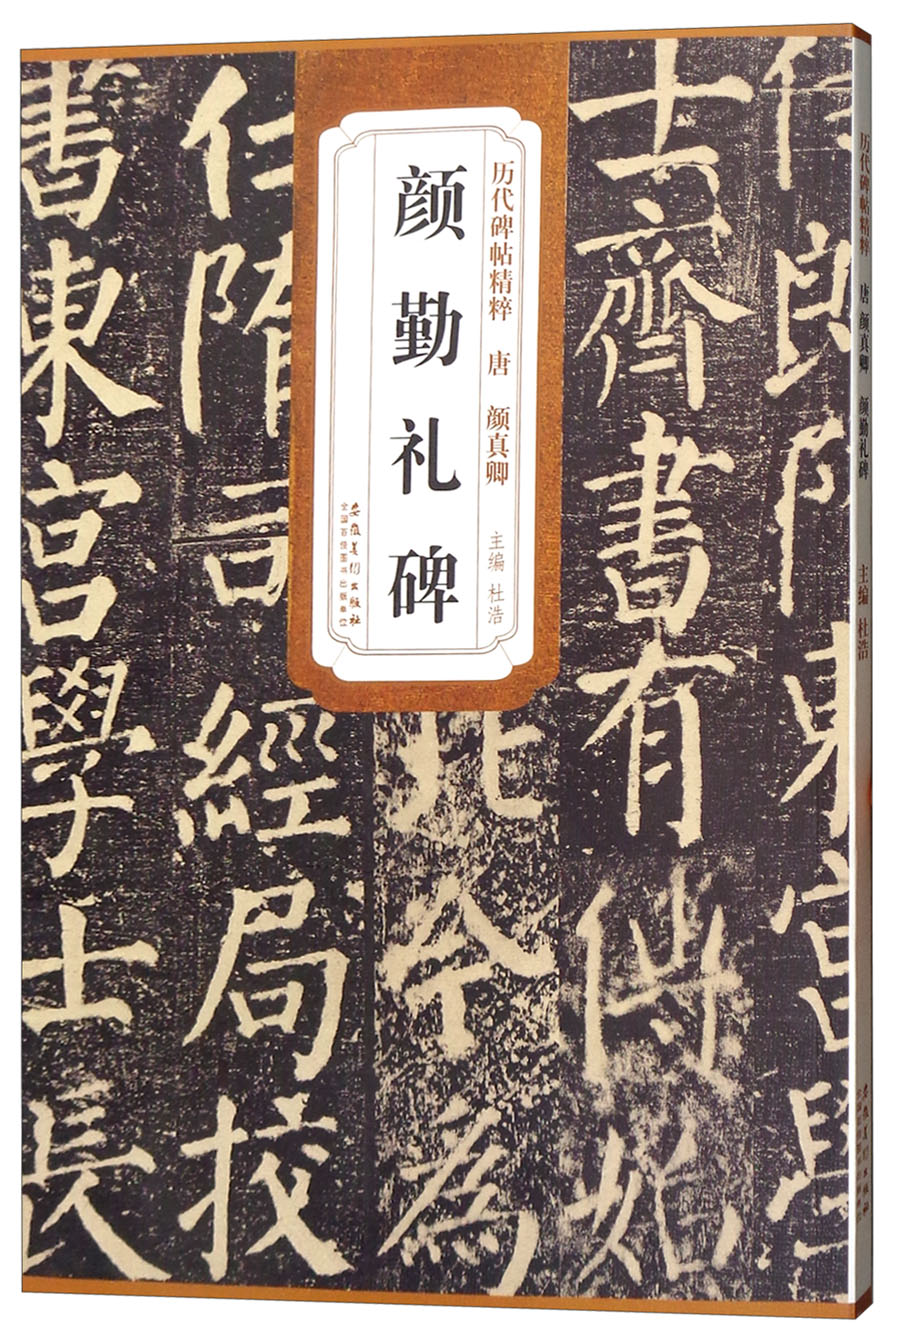 历代碑帖精粹 唐 颜真卿 主编 杜浩
颜勤礼碑
安徽美术出版社
全国百佳图书出版单位
任郎 陳 東宫學
士齊書有傳始
北令為
仁隋司經局挍
書東宫學士長
历代碑帖精粹 唐 颜真卿 颜勤礼碑 主编 杜浩
安徽美术出版社